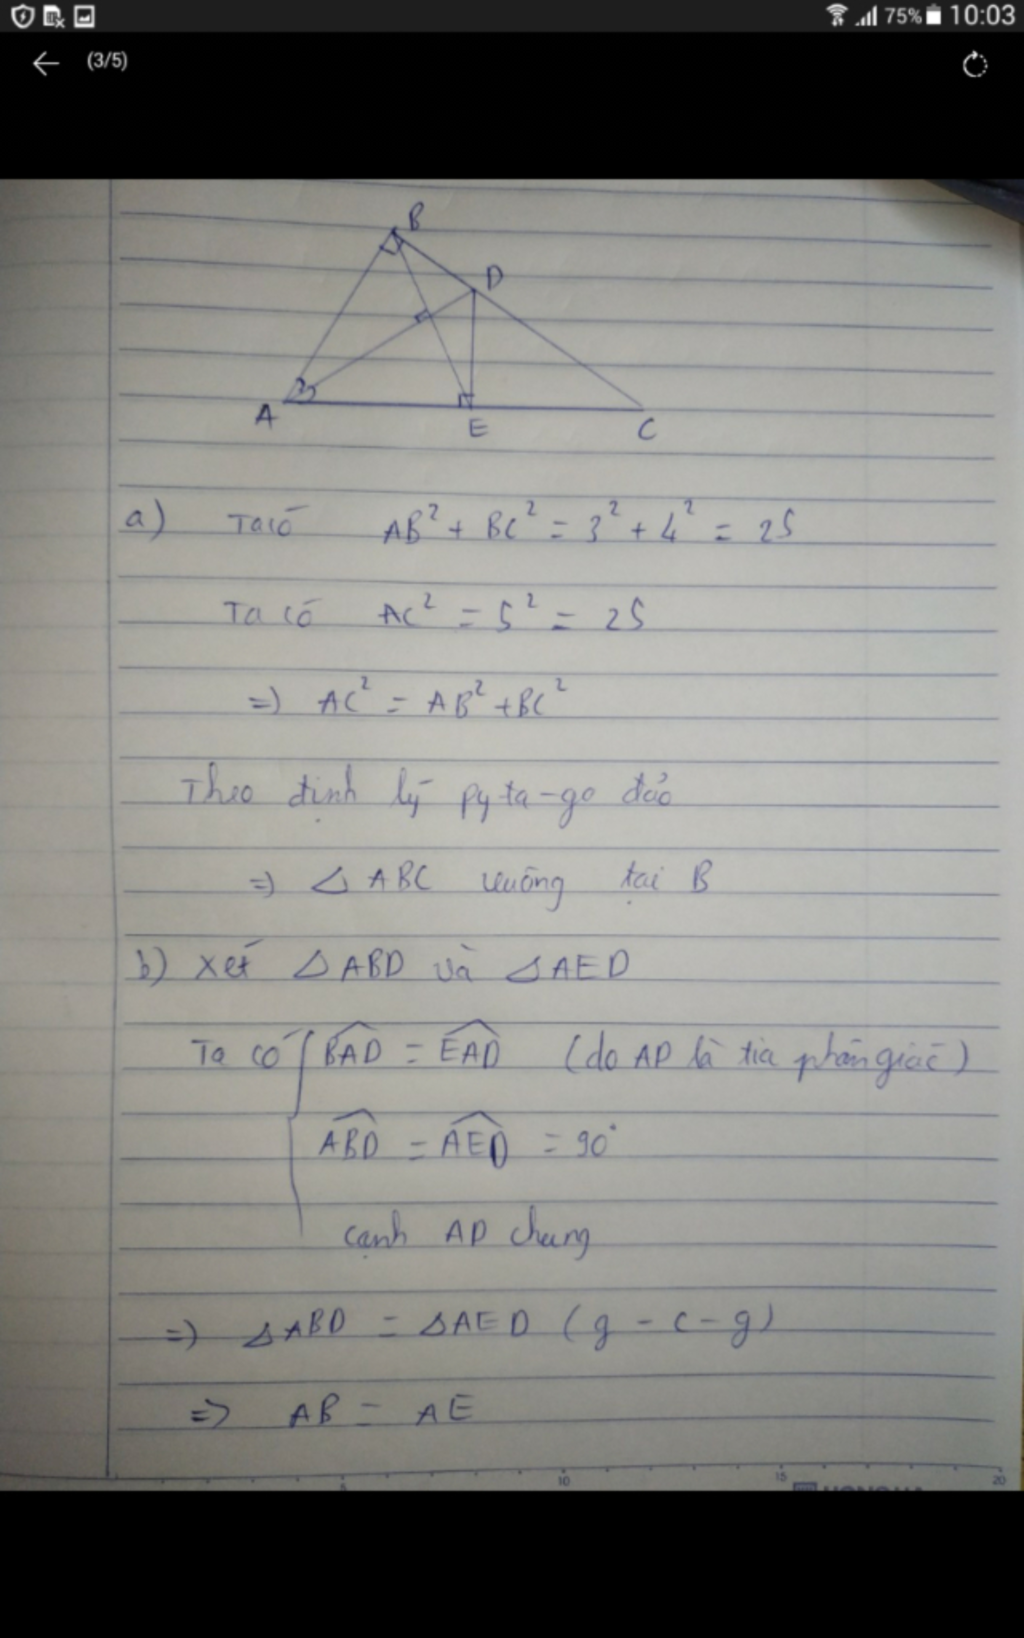 75% 10:03
(3/5)
B
D
A
E
C
a) Ta có AB² + BC² = 3² + 4² = 25
Ta có AC² = 5² = 25
=) AC² = AB² + BC²
Theo định lý pyta-go đảo
=) △ ABC vuông tại B
b) Xét △ABD và △AED
Ta có { BAD = EAD (do AD là tia phân giác)
ABD = AED = 90°
cạnh AD chung
=) △ABD = △AED (g - c - g)
=> AB = AE
5 10 15 20